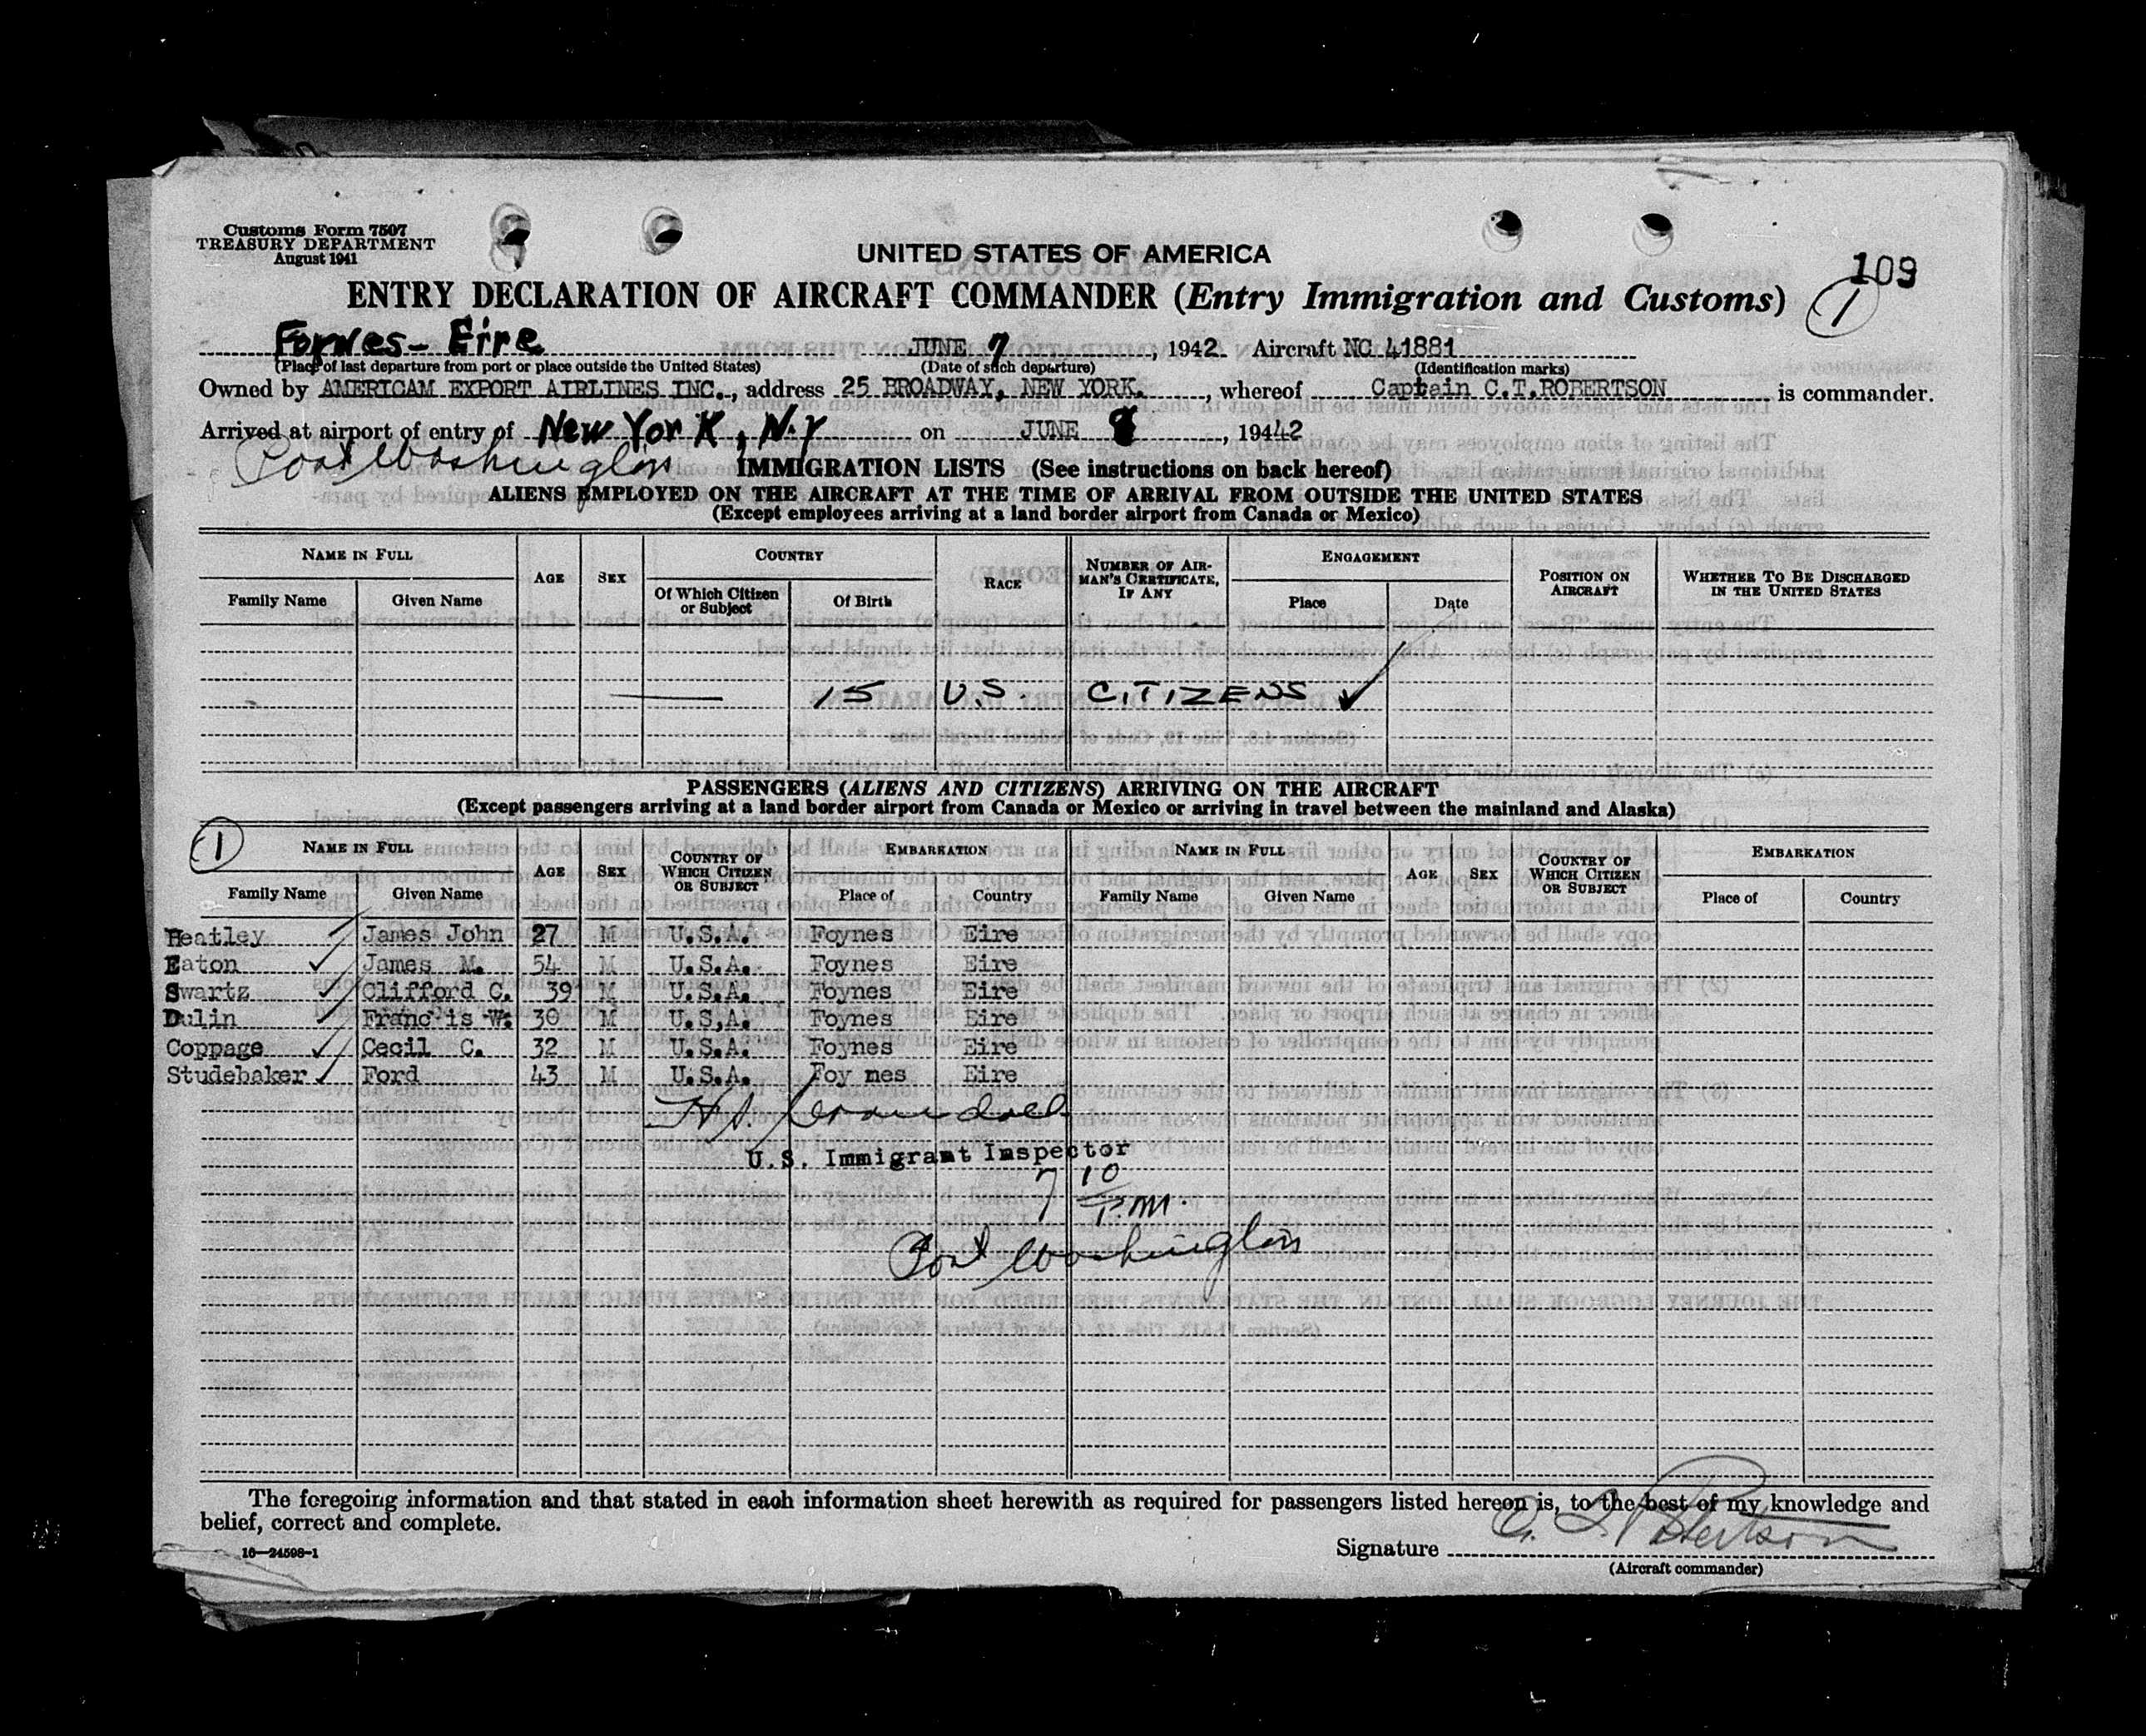 Customs Form 7507
TREASURY DEPARTMENT
August 1941
UNITED STATES OF AMERICA
109
ENTRY DECLARATION OF AIRCRAFT COMMANDER (Entry Immigration and Customs)
1
Foynes - Eire JUNE 7, 1942 Aircraft NC 41881
(Place of last departure from port or place outside the United States) (Date of such departure) (Identification marks)
Owned by AMERICAM EXPORT AIRLINES INC., address 25 BROADWAY, NEW YORK., whereof Captain C.T.ROBERTSON is commander.
Arrived at airport of entry of New York, N.Y on JUNE 8, 19442
Port Washington
IMMIGRATION LISTS (See instructions on back hereof)
ALIENS EMPLOYED ON THE AIRCRAFT AT THE TIME OF ARRIVAL FROM OUTSIDE THE UNITED STATES
(Except employees arriving at a land border airport from Canada or Mexico)
NAME IN FULL AGE SEX COUNTRY RACE NUMBER OF AIRMAN'S CERTIFICATE, IF ANY ENGAGEMENT POSITION ON AIRCRAFT WHETHER TO BE DISCHARGED IN THE UNITED STATES
Family Name Given Name Of Which Citizen or Subject Of Birth Place Date
— 15 U.S. CITIZENS ✓
PASSENGERS (ALIENS AND CITIZENS) ARRIVING ON THE AIRCRAFT
(Except passengers arriving at a land border airport from Canada or Mexico or arriving in travel between the mainland and Alaska)
1
NAME IN FULL AGE SEX COUNTRY OF WHICH CITIZEN OR SUBJECT EMBARKATION NAME IN FULL AGE SEX COUNTRY OF WHICH CITIZEN OR SUBJECT EMBARKATION
Family Name Given Name Place of Country Family Name Given Name Place of Country
Heatley James John 27 M U.S.A. Foynes Eire
Eaton ✓ James M. 54 M U.S.A. Foynes Eire
Swartz ✓ Clifford C. 39 M U.S.A. Foynes Eire
Dulin ✓ Franc is W. 30 M U.S,A. Foynes Eire
Coppage ✓ Cecil C. 32 M U.S.A. Foynes Eire
Studebaker ✓ Ford 43 M U.S.A. Foy nes Eire
U.S. Immigrant Inspector
7 10 P.M.
Port Washington
The foregoing information and that stated in each information sheet herewith as required for passengers listed hereon is, to the best of my knowledge and
belief, correct and complete.
16—24598-1
Signature C. T. Robertson
(Aircraft commander)